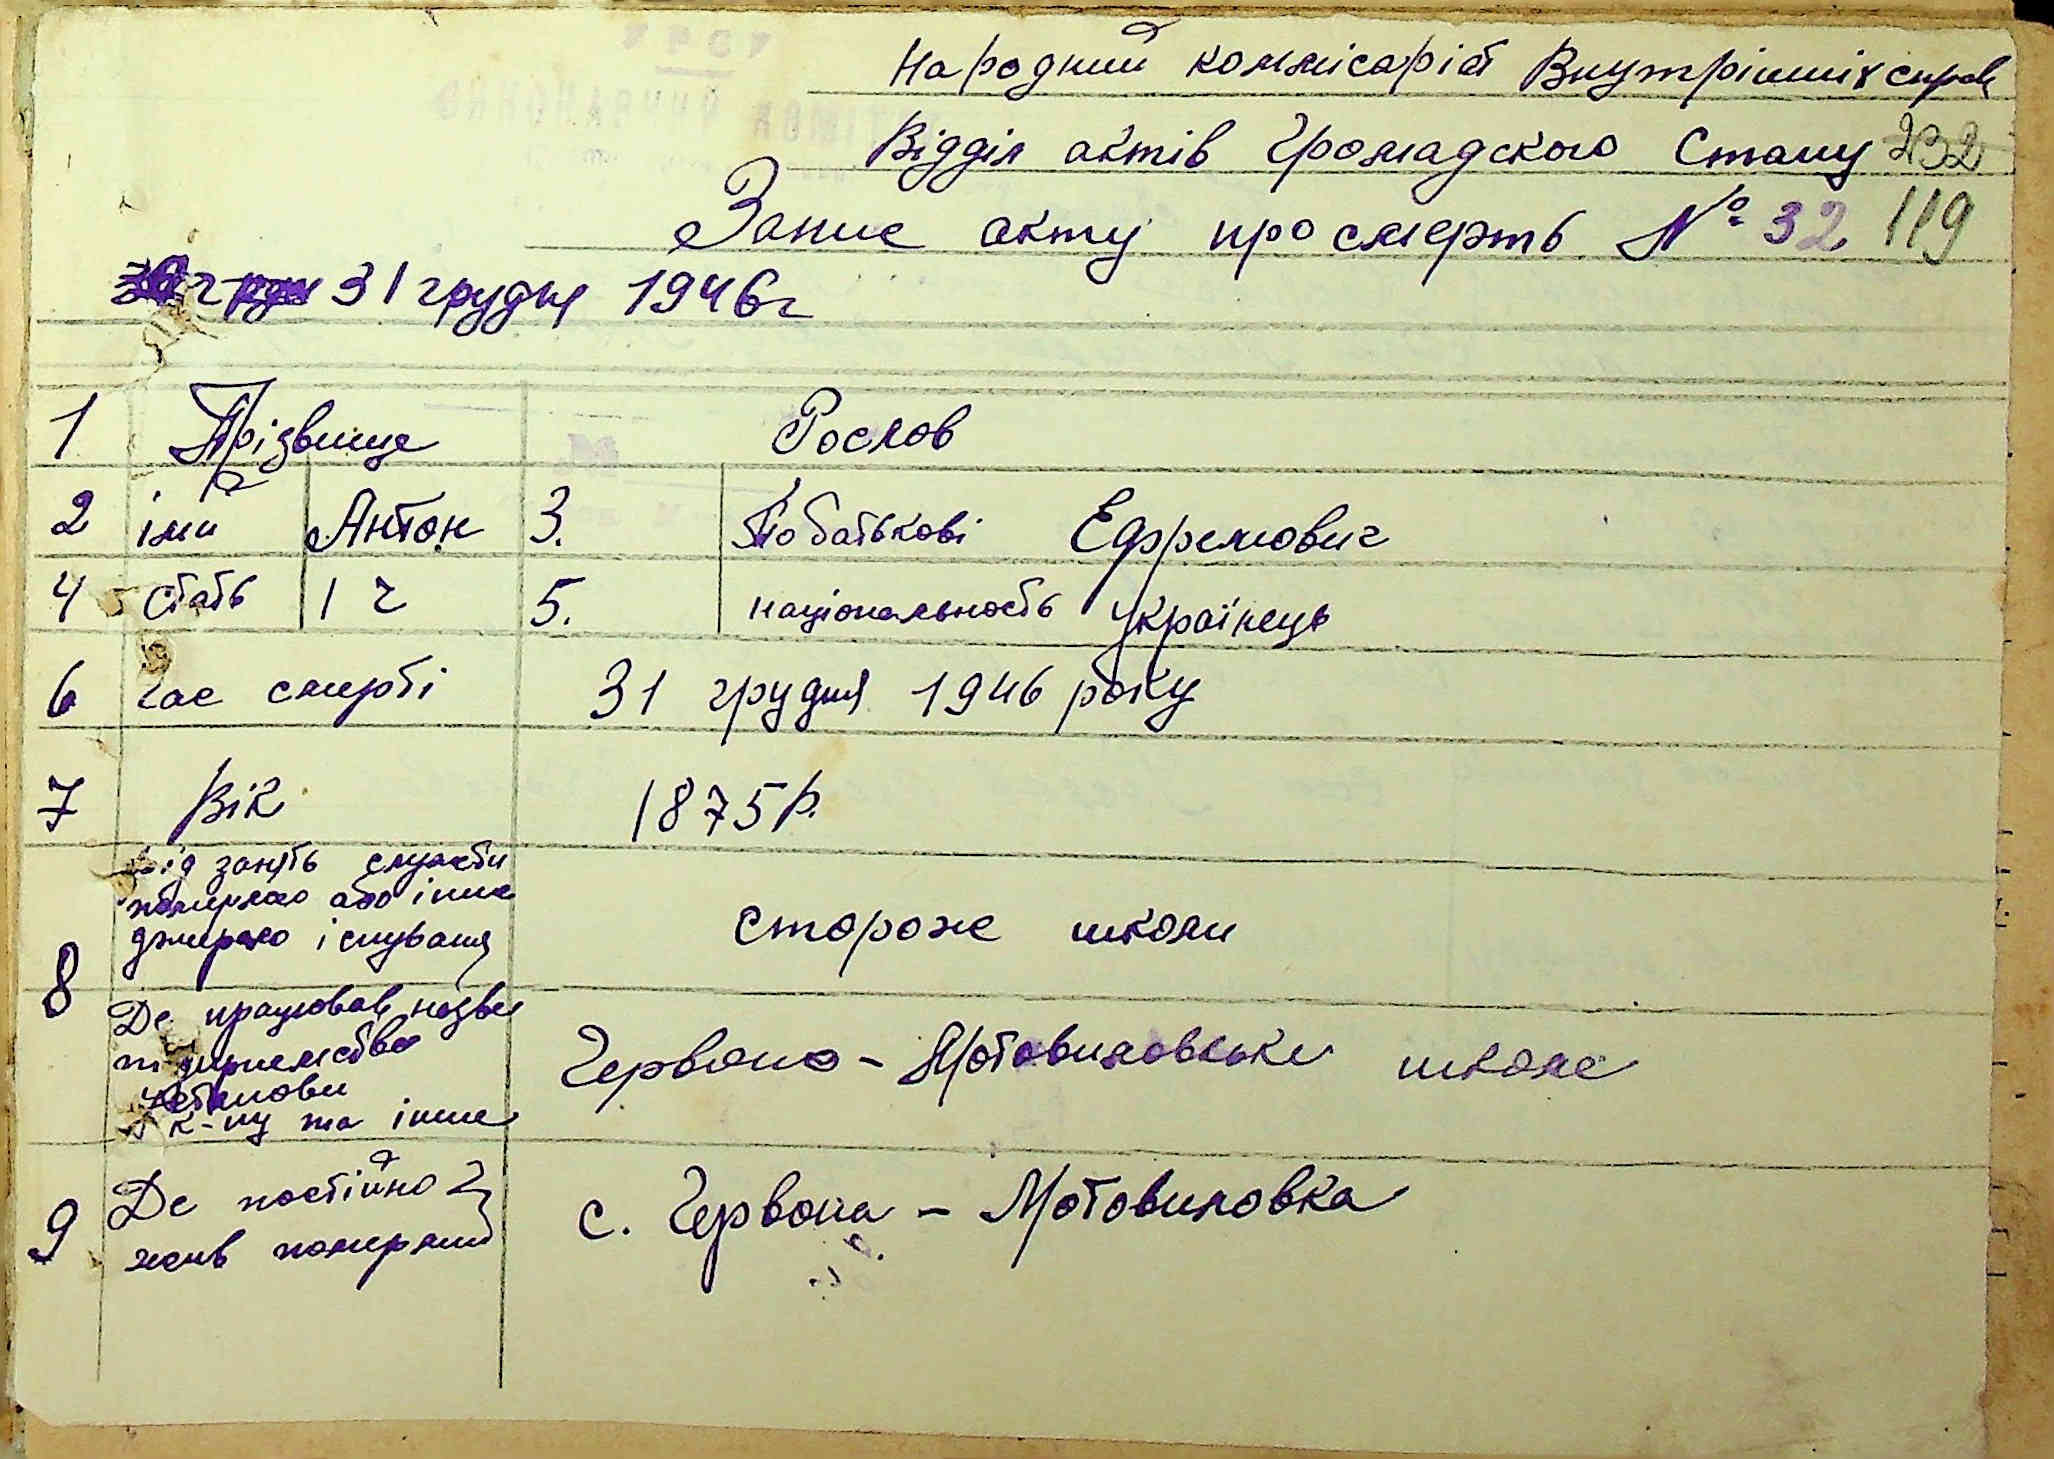 Народний коммісаріат Внутрішніх справ
Відділ актів Громадского Стану 232
Запис акту про смерть № 32 119
31 грудня 1946 г
1 Прізвище Рослов
2 імя Антон 3. Побатькові Ефремович
4 стать 1 ч 5. національность українець
6 Час смерті 31 грудня 1946 року
7 Вік 1875 р.
Від занять служби
померлого або інше
джерело існування
стороже школи
8
Де працював, назва
підприемства
установи
к-пу та інше
Червоно-Мотовиловське школе
9 Де постійно
жив померлий
с. Червона - Мотовиловка